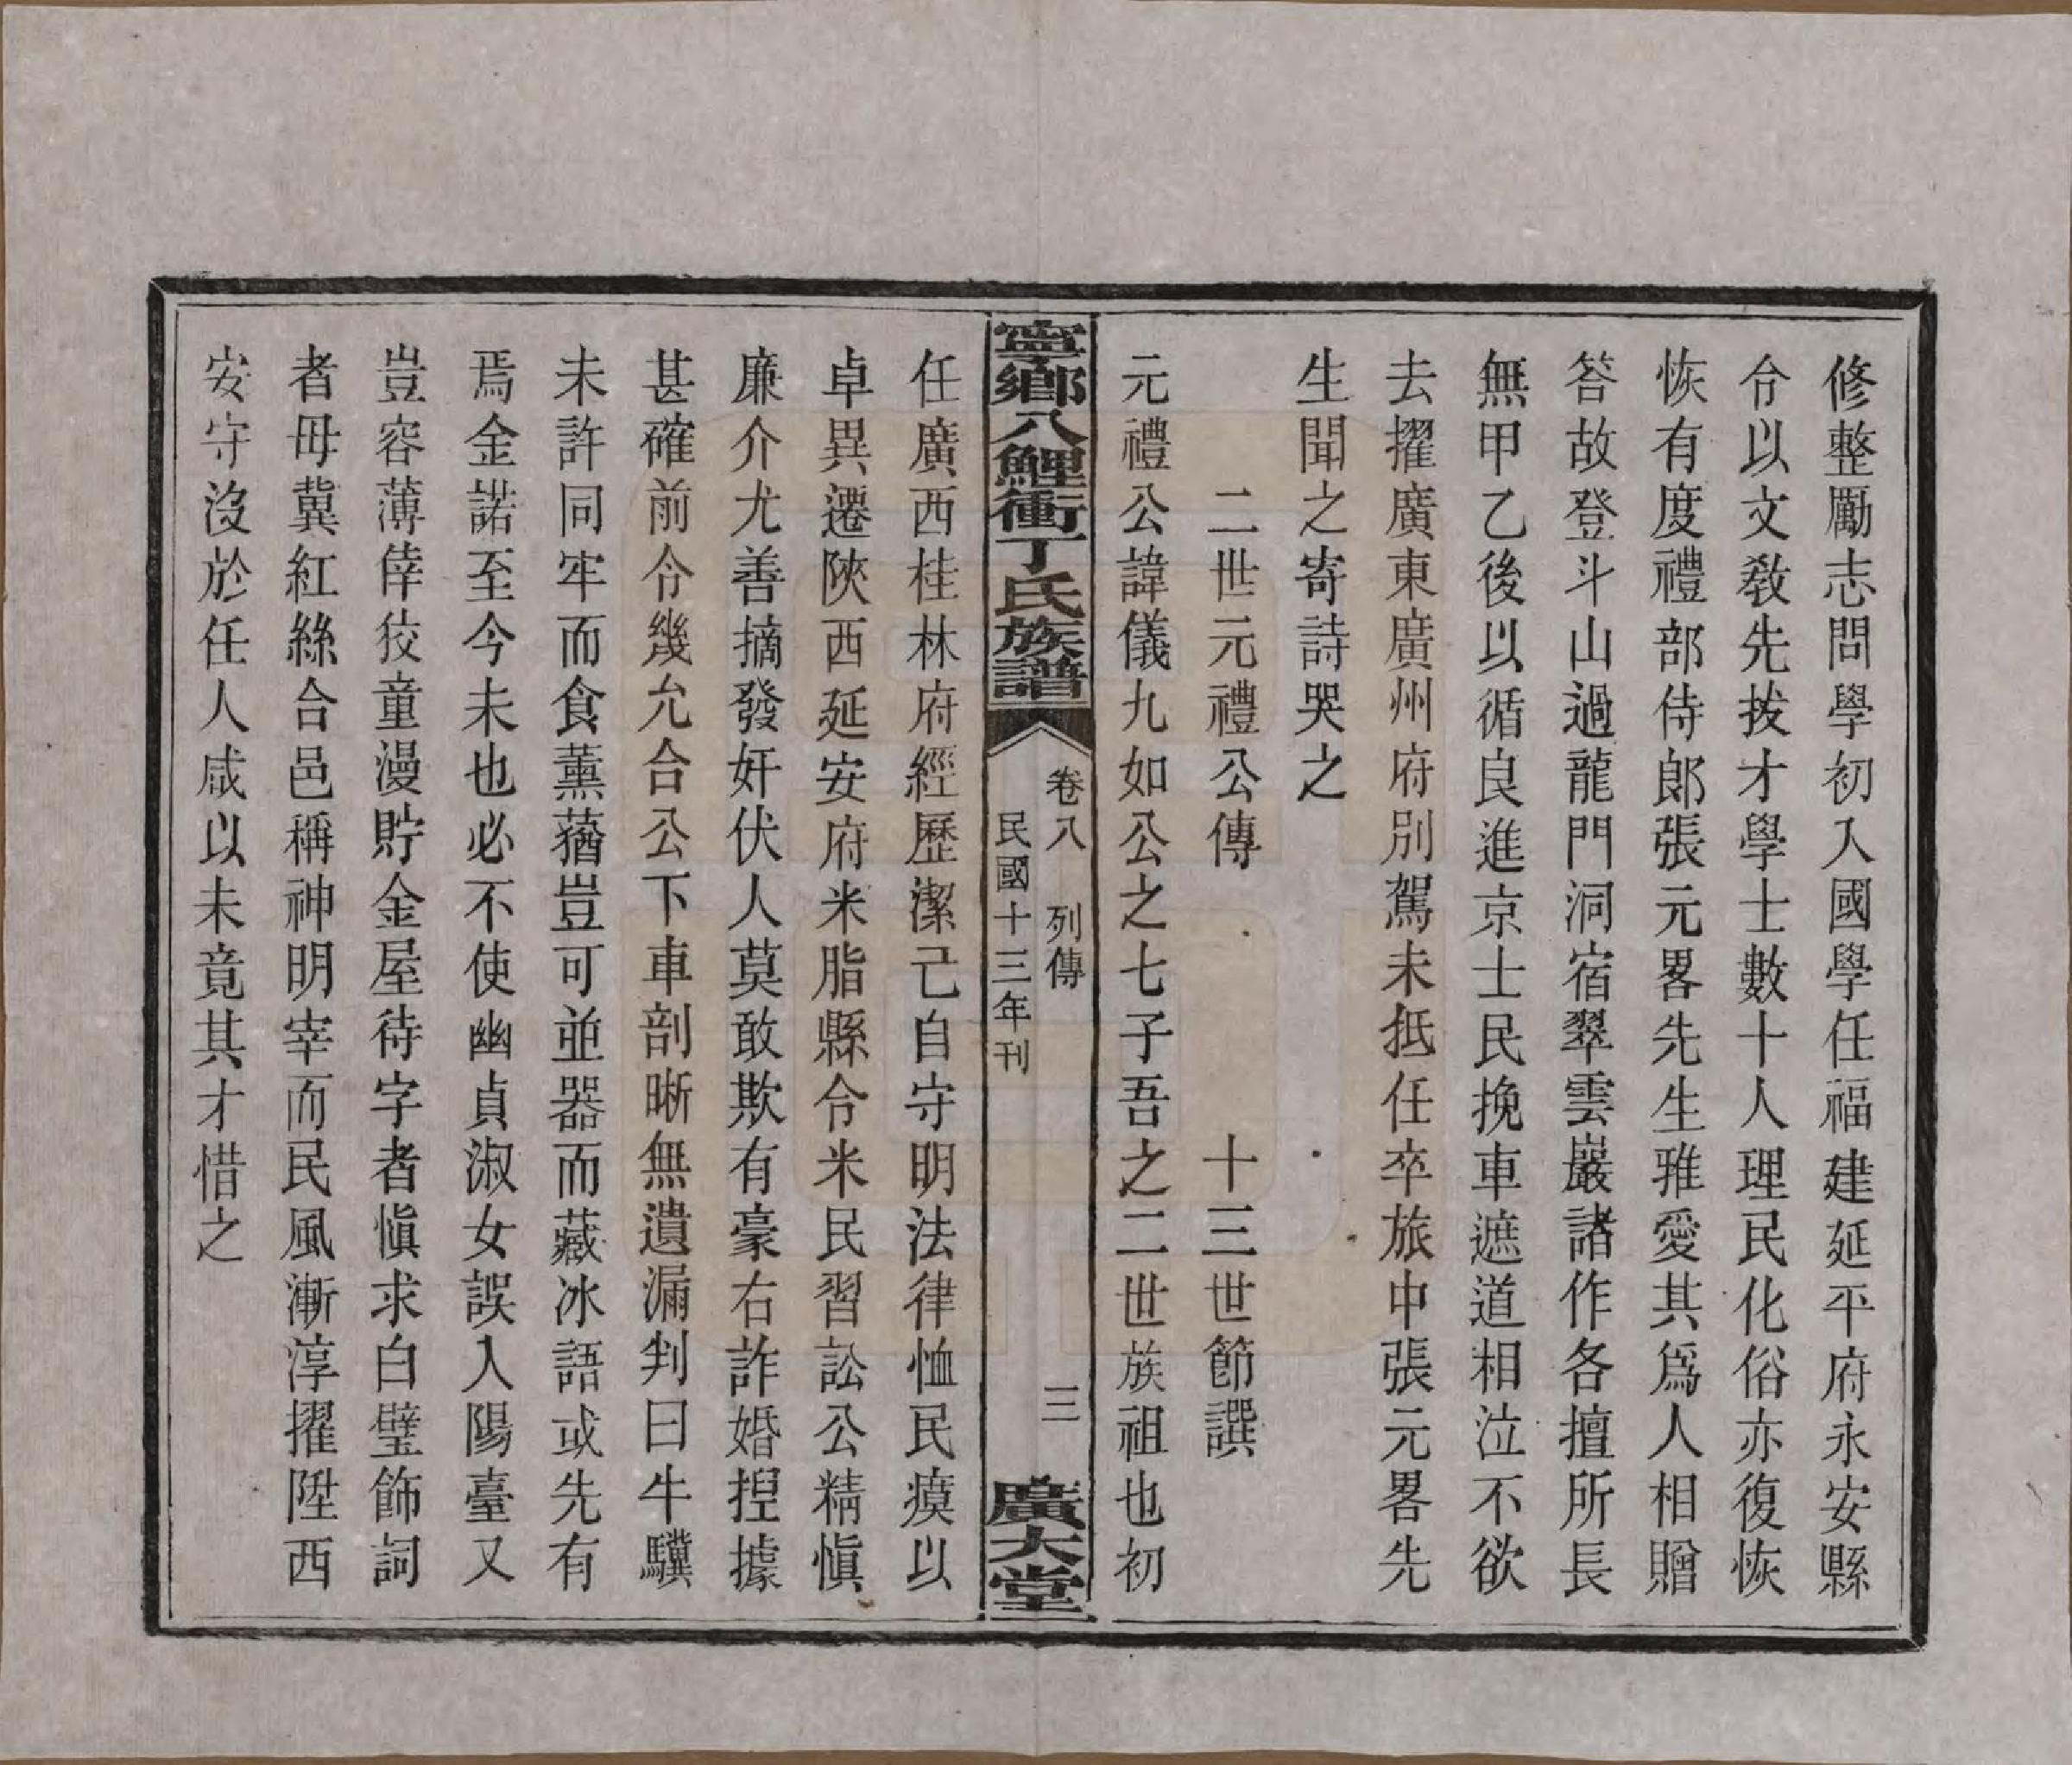 修整勵志問學初入國學任福建延平府永安縣
令以文敎先拔才學士數十人理民化俗亦復恢
恢有度禮部侍郞張元畧先生雅愛其爲人相贈
答故登斗山過龍門洞宿翠雲巖諸作各擅所長
無甲乙後以循良進京士民挽車遮道相泣不欲
去擢廣東廣州府別駕未抵任卒旅中張元畧先
生聞之寄詩哭之
二世元禮公傳　十三世節譔
元禮公諱儀九如公之七子吾之二世族祖也初
寧鄉八鯉衝丁氏族譜
卷八　列傳　三
民國十三年刊
廣大堂
任廣西桂林府經歷潔己自守明法律恤民瘼以
卓異遷陝西延安府米脂縣令米民習訟公精愼
廉介尤善摘發奸伏人莫敢欺有豪右詐婚揑據
甚確前令幾允合公下車剖晰無遺漏判曰牛驥
未許同牢而食薰蕕豈可並器而藏冰語或先有
焉金諾至今未也必不使幽貞淑女誤入陽臺又
豈容薄倖狡童漫貯金屋待字者愼求白璧飾詞
者毋冀紅絲合邑稱神明宰而民風漸淳擢陞西
安守沒於任人咸以未竟其才惜之